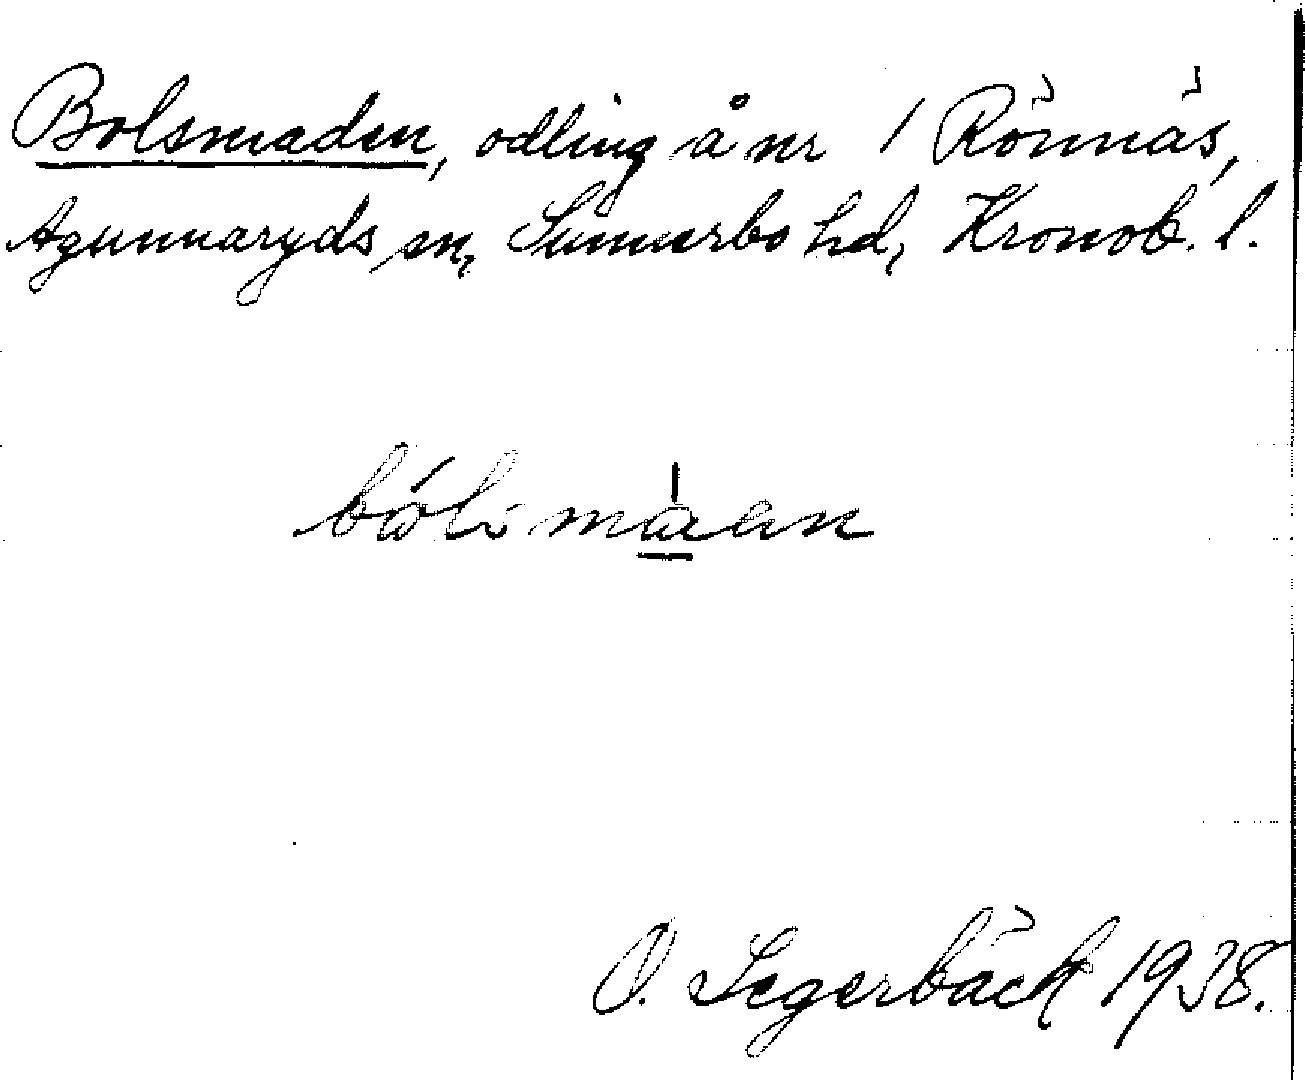 Bolsmaden, odling å nr 1 Rönnäs,
Agunnaryds sn, Sunnerbo hd, Kronob. l.
O. Segerbäck 1938.